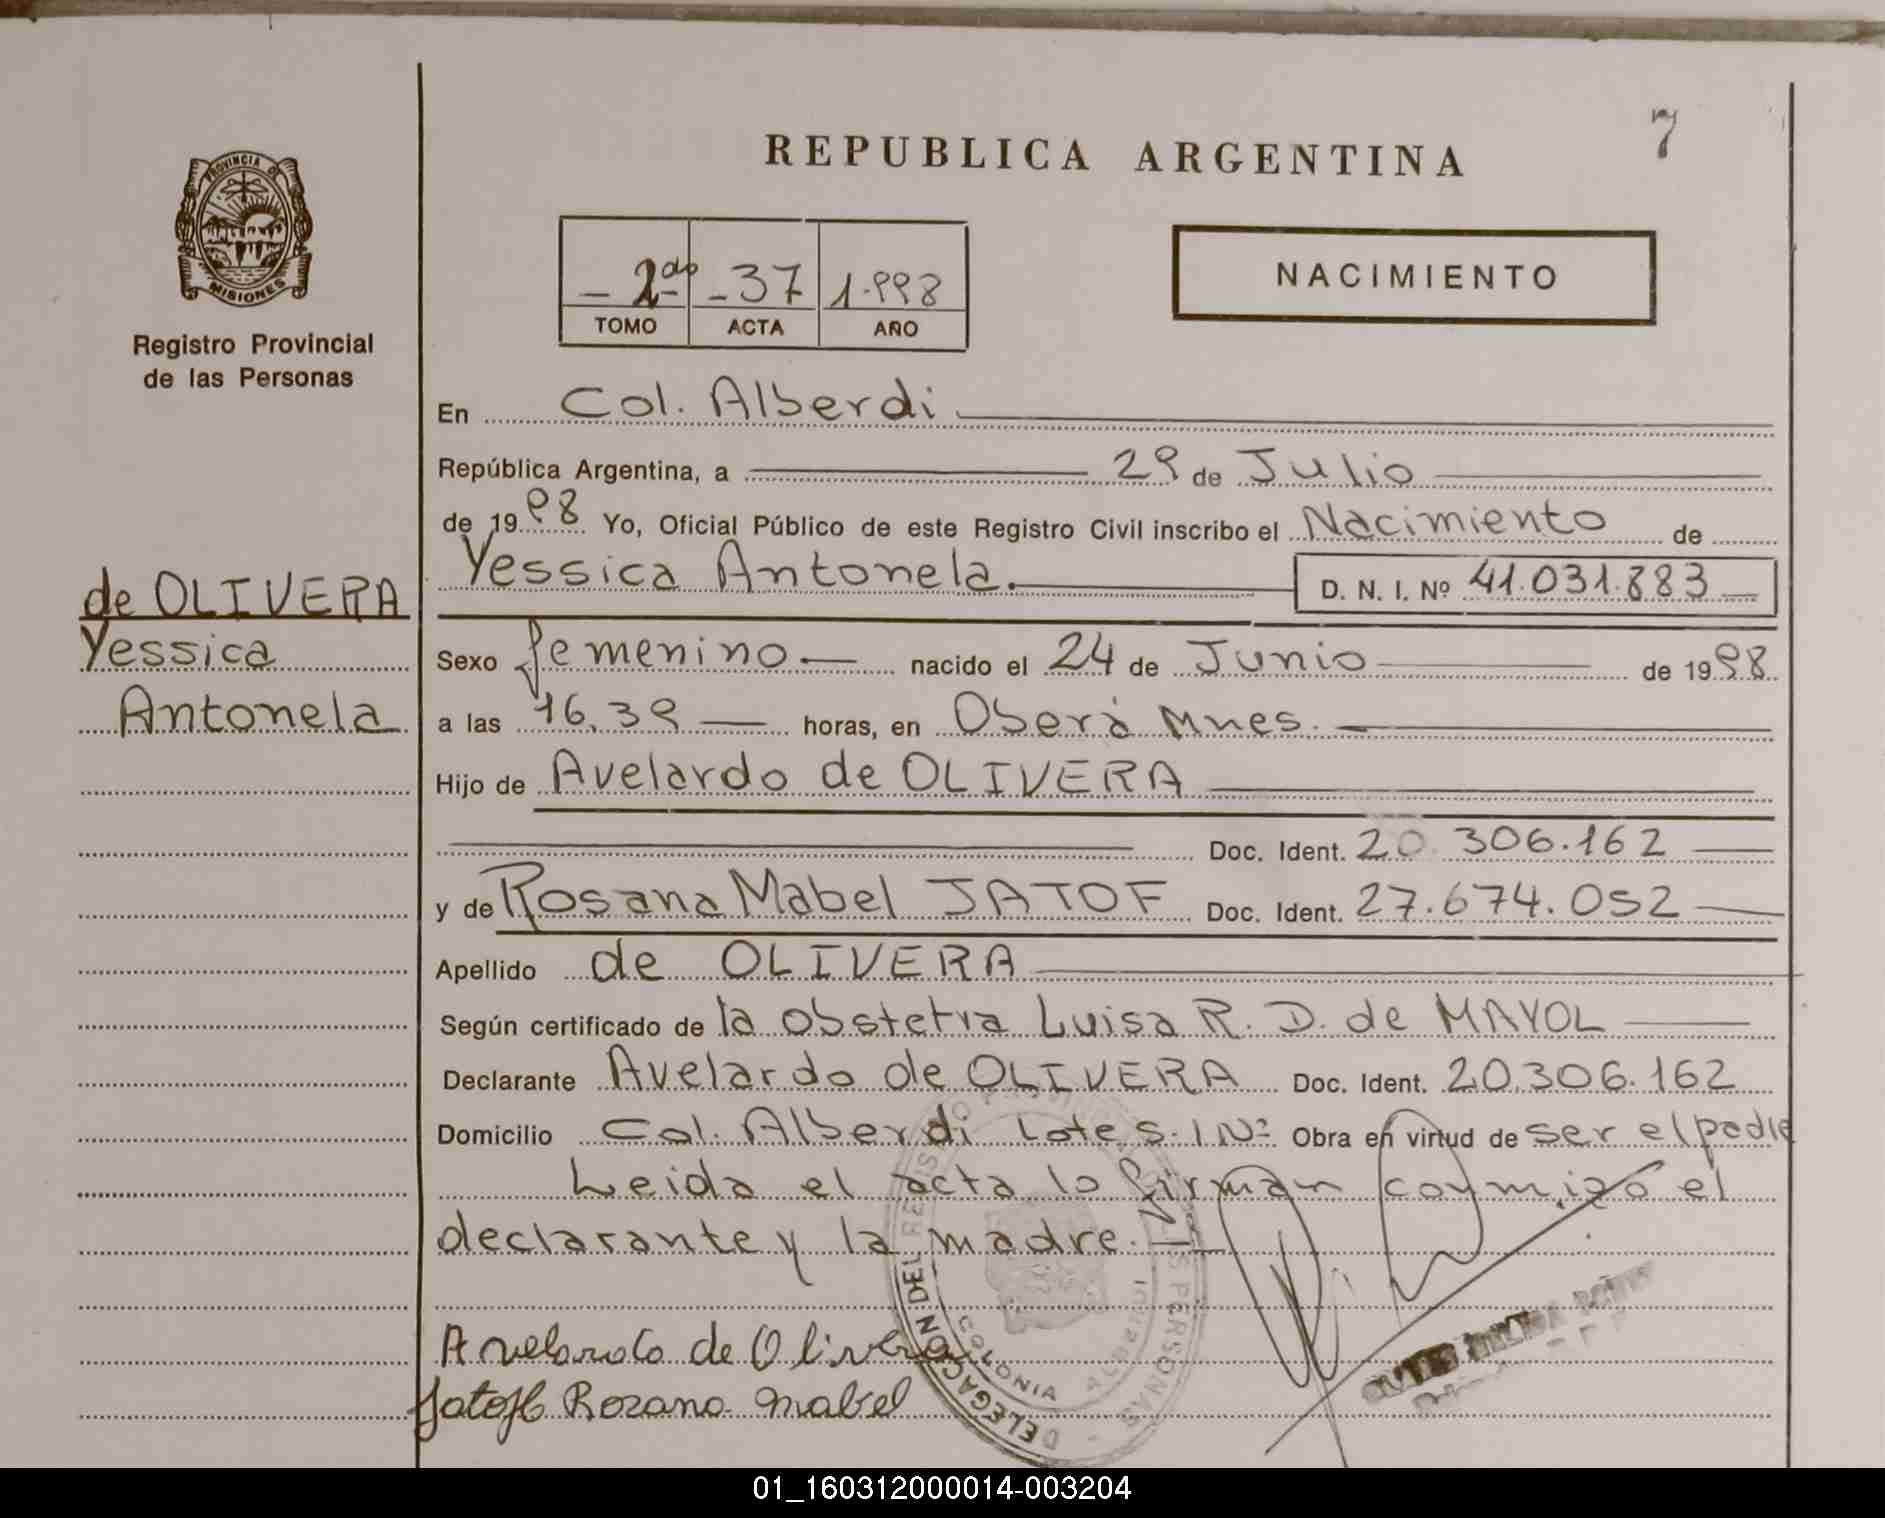 7
REPUBLICA ARGENTINA
PROVINCIA DE
MISIONES
Registro Provincial
de las Personas
2do 37 1.998
TOMO ACTA AÑO
NACIMIENTO
En Col. Alberdi
República Argentina, a 29 de Julio
de 1998 Yo, Oficial Público de este Registro Civil inscribo el Nacimiento de
Yessica Antonela. D. N. I. Nº 41.031.883
de OLIVERA
Yessica
Antonela
Sexo femenino nacido el 24 de Junio de 1998
a las 16,39 horas, en Oberá Mnes.
Hijo de Avelardo de OLIVERA
Doc. Ident. 20.306.162
y de Rosana Mabel JATOF Doc. Ident. 27.674.052
Apellido de OLIVERA
Según certificado de la obstetra Luisa R. D. de MAYOL
Declarante Avelardo de OLIVERA Doc. Ident. 20.306.162
Domicilio Col. Alberdi Lote S. Nº Obra en virtud de ser el padre
Leida el acta lo firman conmigo el
declarante y la madre.
Avelardo de Olivera
Jatof Rozana mabel
DELEGACION DEL REGISTRO PERSONAS
COLONIA ALBERDI
01_160312000014-003204